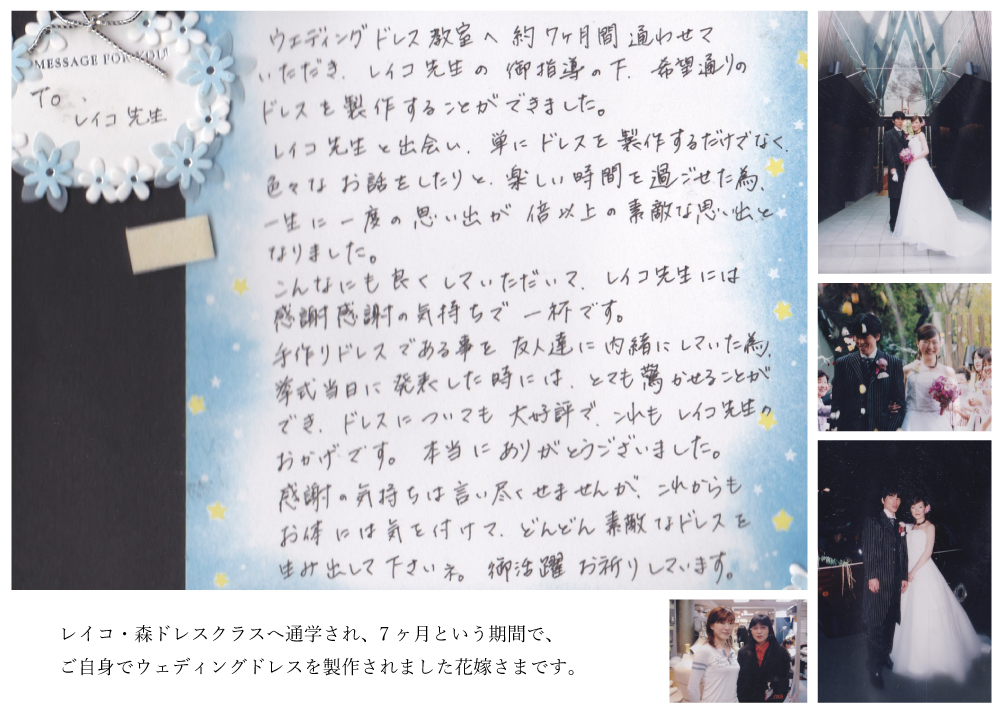 MESSAGE FOR YOU
To.
レイコ先生
ウェディングドレス教室へ約7ヶ月間通わせて
いただき、レイコ先生の御指導の下、希望通りの
ドレスを製作することができました。
レイコ先生と出会い、単にドレスを製作するだけでなく、
色々なお話をしたりと、楽しい時間を過ごせた為、
一生に一度の思い出が倍以上の素敵な思い出と
なりました。
こんなにも良くしていただいて、レイコ先生には
感謝感謝の気持ちで一杯です。
手作りドレスである事を友人達に内緒にしていた為、
挙式当日に発表した時には、とても驚かせることが
でき、ドレスについても大好評で、これもレイコ先生の
おかげです。本当にありがとうございました。
感謝の気持ちは言い尽くせませんが、これからも
お体には気を付けて、どんどん素敵なドレスを
生み出して下さいネ。御活躍お祈りしています。
レイコ・森ドレスクラスへ通学され、7ヶ月という期間で、
ご自身でウェディングドレスを製作されました花嫁さまです。